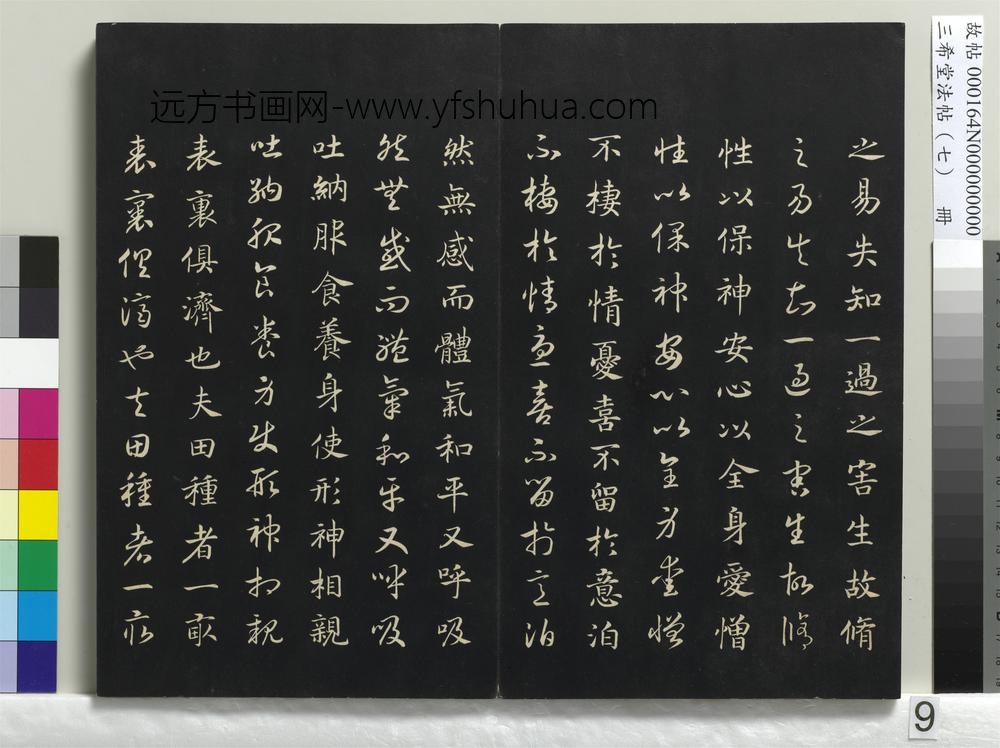 之易失知一過之害生故脩
之易失知一過之害生故脩
性以保神安心以全身愛憎
性以保神安心以全身愛憎
不棲於情憂喜不留於意泊
不棲於情憂喜不留於意泊
然無感而體氣和平又呼吸
然無感而體氣和平又呼吸
吐納服食養身使形神相親
吐納服食養身使形神相親
表裏俱濟也夫田種者一畝
表裏俱濟也夫田種者一畝
远方书画网-www.yfshuhua.com
故帖 000164N000000000
三希堂法帖（七） 冊
9